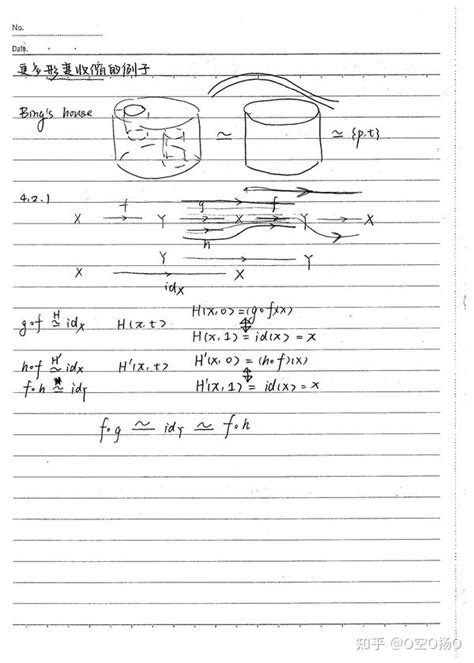 No.
Date. . .
更多形变收缩的例子
Bing's house ≃ ≃ {p.t}
4.2.1
X f Y g X f Y X
h
Y Y
X idx X
g∘f ≃ idx H H(x,t) H(x,0)=(g∘f)(x)
H(x,1)=id(x)=x
h∘f ≃ idx H' H'(x,t) H'(x,0)=(h∘f)(x)
f∘h ≃ idY H'(x,1)=id(x)=x
f∘g ≃ idY ≃ f∘h
知乎 @O空O扬O